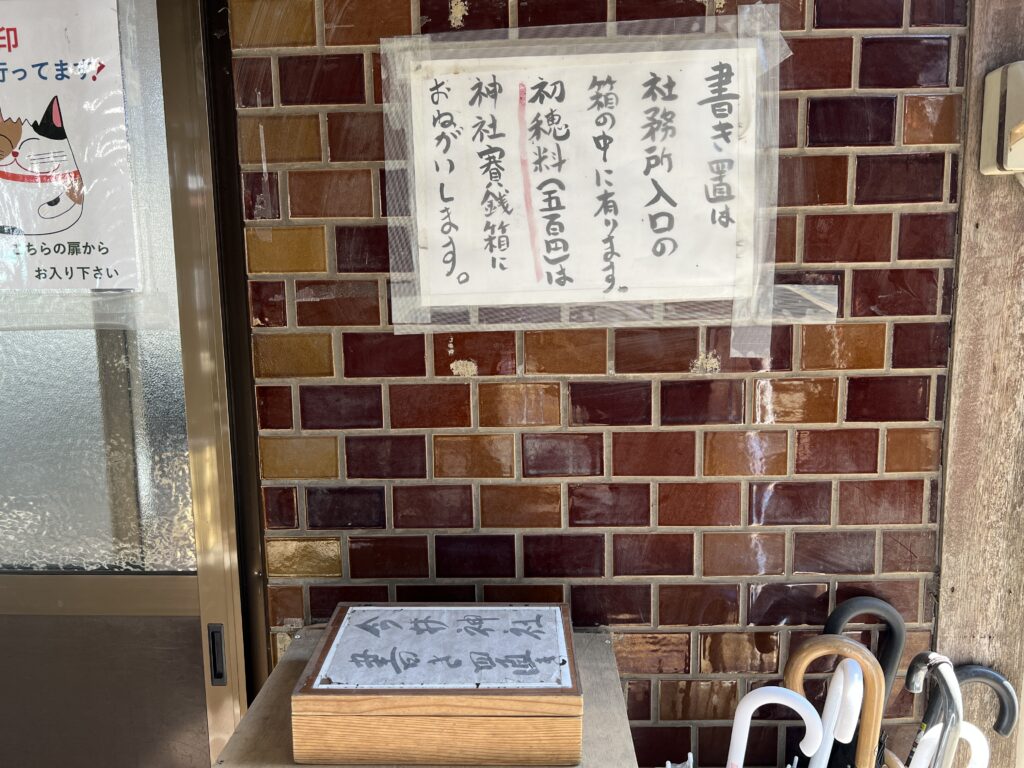 書き置は
社務所入口の
箱の中に有ります。
初穂料(五百円)は
神社賽銭箱に
おねがいします。
印
行ってます
こちらの扉から
お入り下さい
今井神社
書き置き